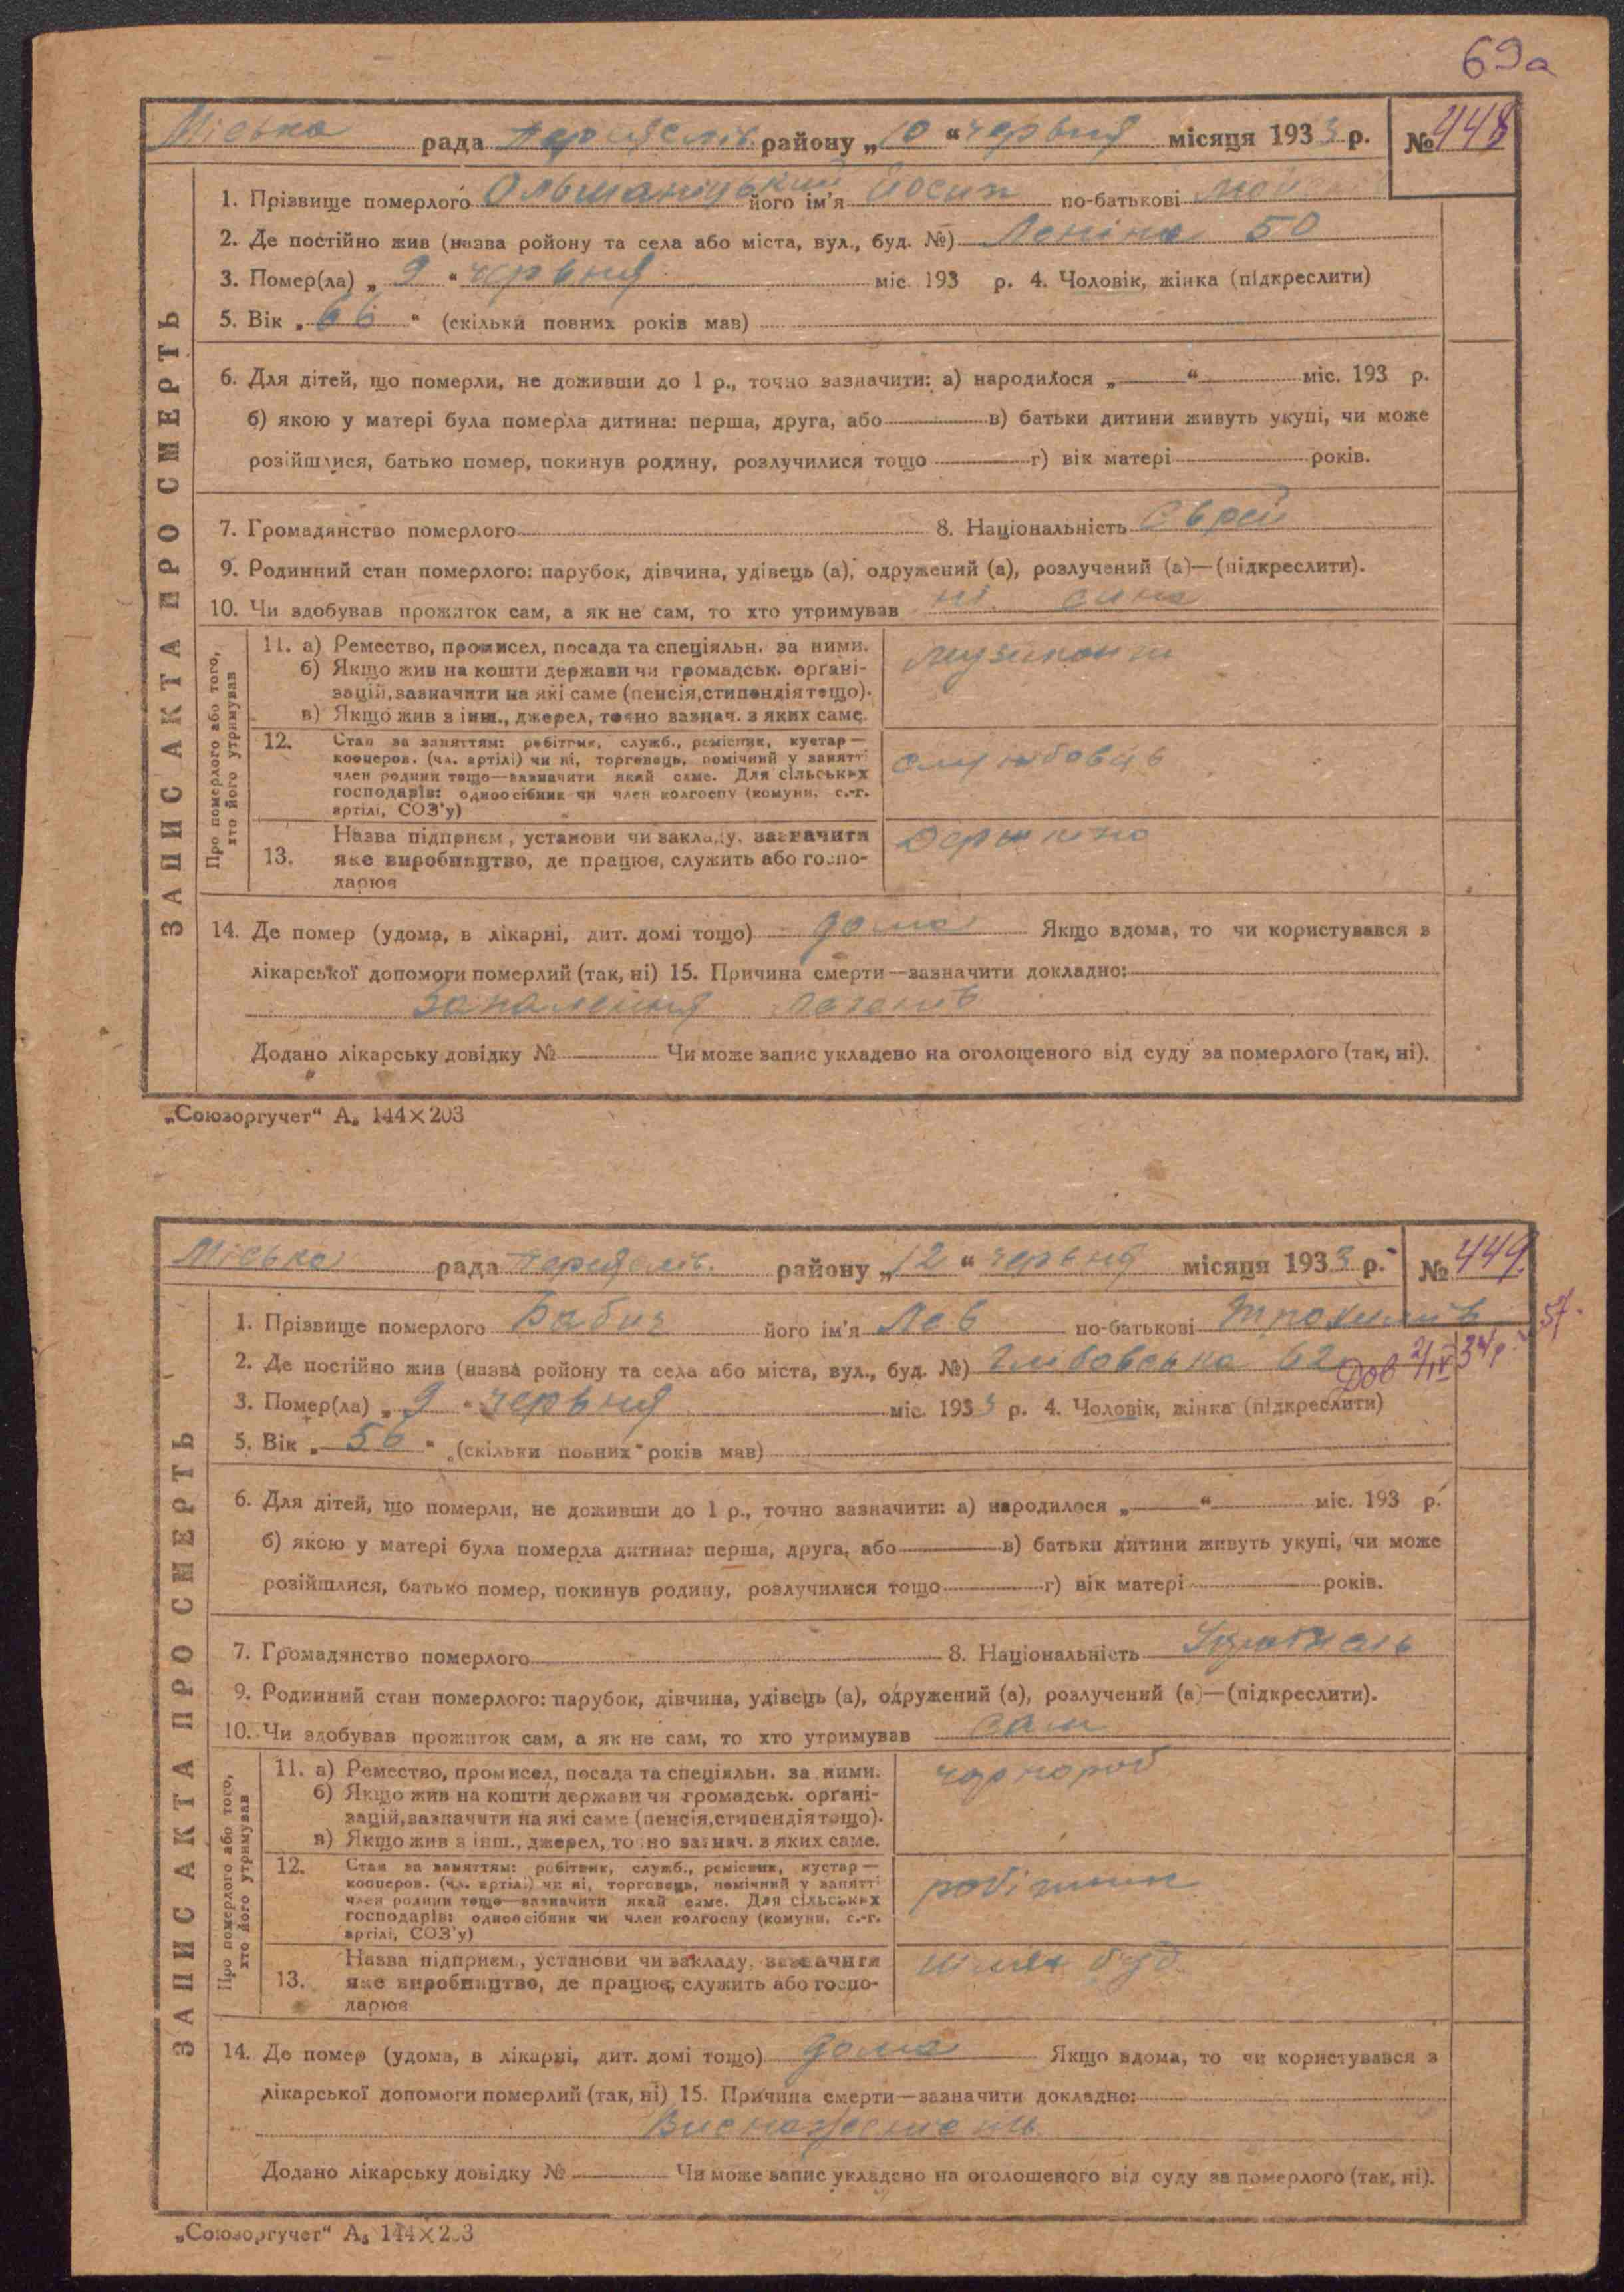 69а
Міська рада Переяслів. району „10“ червня місяця 1933 р. № 448
1. Прізвище померлого Ольшаницький його ім'я Йосип по-батькові
2. Де постійно жив (назва ройону та села або міста, вул., буд. №) Леніна 50
3. Помер(ла) „ 9 “ червня міс. 193 р. 4. Чоловік, жінка (підкреслити)
5. Вік „ 66 “ (скільки повних років мав)
6. Для дітей, що померли, не доживши до 1 р., точно зазначити: а) народилося „ “ міс. 193 р.
б) якою у матері була померла дитина: перша, друга, або в) батьки дитини живуть укупі, чи може
розійшлися, батько помер, покинув родину, розлучилися тощо г) вік матері років.
7. Громадянство померлого 8. Національність Єврей
9. Родинний стан померлого: парубок, дівчина, удівець (а), одружений (а), розлучений (а)—(підкреслити).
10. Чи здобував прожиток сам, а як не сам, то хто утримував ні сина
ЗАПИС АКТА ПРО СМЕРТЬ
Про померлого або того,
хто його утримував
11. а) Ремество, промисел, посада та спеціяльн. за ними.
б) Якщо жив на кошти держави чи громадськ. органі-
зацій, зазначити на які саме (пенсія, стипендія тощо).
в) Якщо жив з інш., джерел, точно вазнач. з яких саме.
музикант
12. Стан за заняттям: робітник, служб., ремісник, кустар —
кооперов. (чл. артілі) чи ні, торговець, помічний у занятті
член родини тощо—вазначити який саме. Для сільських
господарів: одноосібник чи член колгоспу (комуни, с.-г.
артілі, СОЗ'у)
службовець
13. Назва підприєм., установи чи закладу, зазначити
яке виробництво, де працює, служить або госпо-
дарює
Держкіно
14. Де помер (удома, в лікарні, дит. домі тощо) дома Якщо вдома, то чи користувався з
лікарської допомоги померлий (так, ні) 15. Причина смерти—зазначити докладно:
Запалення легенів
Додано лікарську довідку № Чи може запис укладено на оголошеного від суду за померлого (так, ні).
„Союзоргучет“ А₅ 144×203
Міська рада Переяслів. району „12“ червня місяця 1933 р. № 449
1. Прізвище померлого Бабич його ім'я Лев по-батькові Трохимів
2. Де постійно жив (назва ройону та села або міста, вул., буд. №) 62
3. Помер(ла) „ 9 “ червня міс. 1933 р. 4. Чоловік, жінка (підкреслити)
5. Вік „ 56 “ (скільки повних років мав)
6. Для дітей, що померли, не доживши до 1 р., точно зазначити: а) народилося „ “ міс. 193 р.
б) якою у матері була померла дитина: перша, друга, або в) батьки дитини живуть укупі, чи може
розійшлися, батько помер, покинув родину, розлучилися тощо г) вік матері років.
7. Громадянство померлого 8. Національність
9. Родинний стан померлого: парубок, дівчина, удівець (а), одружений (а), розлучений (а)—(підкреслити).
10. Чи здобував прожиток сам, а як не сам, то хто утримував сам
ЗАПИС АКТА ПРО СМЕРТЬ
Про померлого або того,
хто його утримував
11. а) Ремество, промисел, посада та спеціяльн. за ними.
б) Якщо жив на кошти держави чи громадськ. органі-
зацій, зазначити на які саме (пенсія, стипендія тощо).
в) Якщо жив з інш., джерел, точно вазнач. з яких саме.
чорнороб
12. Стан за заняттям: робітник, служб., ремісник, кустар —
кооперов. (чл. артілі) чи ні, торговець, помічний у занятті
член родини тощо—вазначити який саме. Для сільських
господарів: одноосібник чи член колгоспу (комуни, с.-г.
артілі, СОЗ'у)
робітник
13. Назва підприєм., установи чи закладу, зазначити
яке виробництво, де працює, служить або госпо-
дарює
14. Де помер (удома, в лікарні, дит. домі тощо) дома Якщо вдома, то чи користувався з
лікарської допомоги померлий (так, ні) 15. Причина смерти—зазначити докладно:
Виснаженість
Додано лікарську довідку № Чи може запис укладено на оголошеного від суду за померлого (так, ні).
„Союзоргучет“ А₅ 144×203